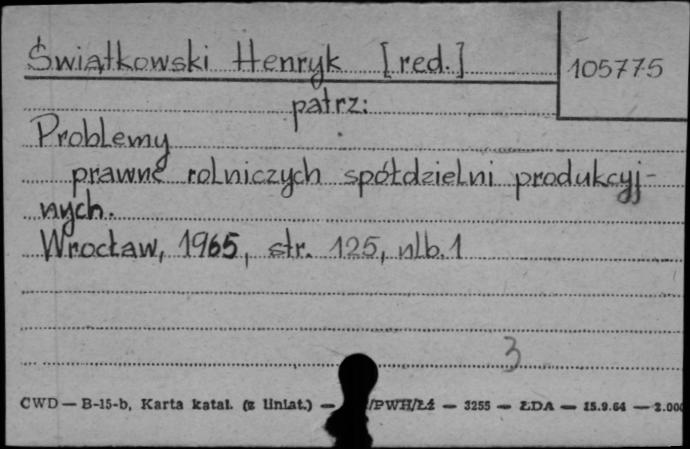 Świątkowski Henryk [red.]
105775
patrz:
Problemy
prawne rolniczych spółdzielni produkcyj-
nych.
Wrocław, 1965, str. 125, nlb. 1
3
CWD — B-15-b, Karta katal. (z liniat.) — /PWH/Łź — 3255 — ŁDA — 15.9.64 — 2.000